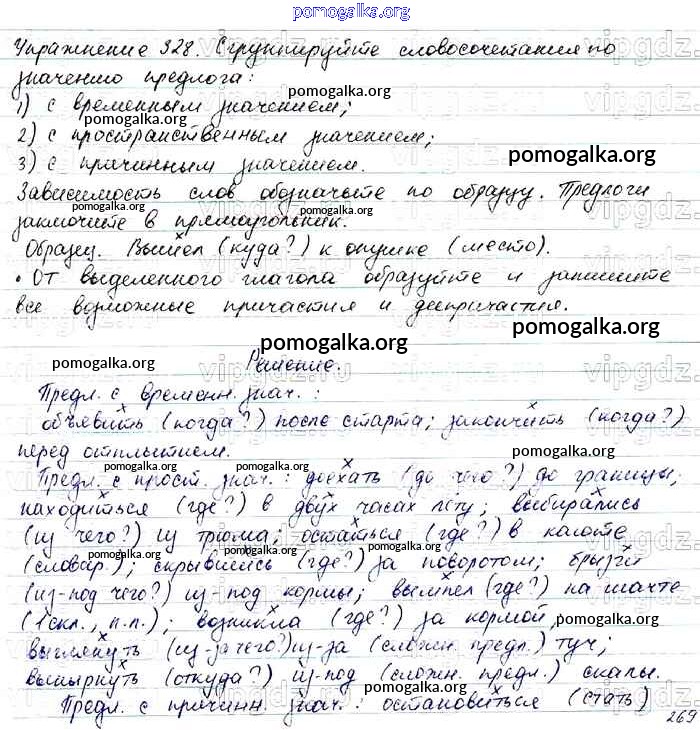 pomogalka.org
Упражнение 328. Сгруппируйте словосочетания по
значению предлога:
1) с временным значением;
2) с пространственным значением;
3) с причинным значением.
Зависимость слов обозначьте по образцу. Предлоги
заключите в прямоугольник.
Образец. Вышел (куда?) к опушке (место).
• От выделенного глагола образуйте и запишите
все возможные причастия и деепричастия.
Решение.
Предл. с временн. знач. :
объявить (когда?) после старта; закончить (когда?)
перед отплытием.
Предл. с прост. знач. : доехать (до чего?) до границы;
находиться (где?) в двух часах лёту; выбирались
(из чего?) из трюма; остаться (где?) в каюте
(словар.); скрывшись (где?) за поворотом; брызги
(из-под чего?) из-под кормы; вымпел (где?) на мачте
(1 скл., п.п.); возникла (где?) за кормой
выглянуть (из-за чего?) из-за (сложн. предл.) туч;
вынырнуть (откуда?) из-под (сложн. предл.) скалы.
Предл. с причинн. знач. : остановиться (стать)
269